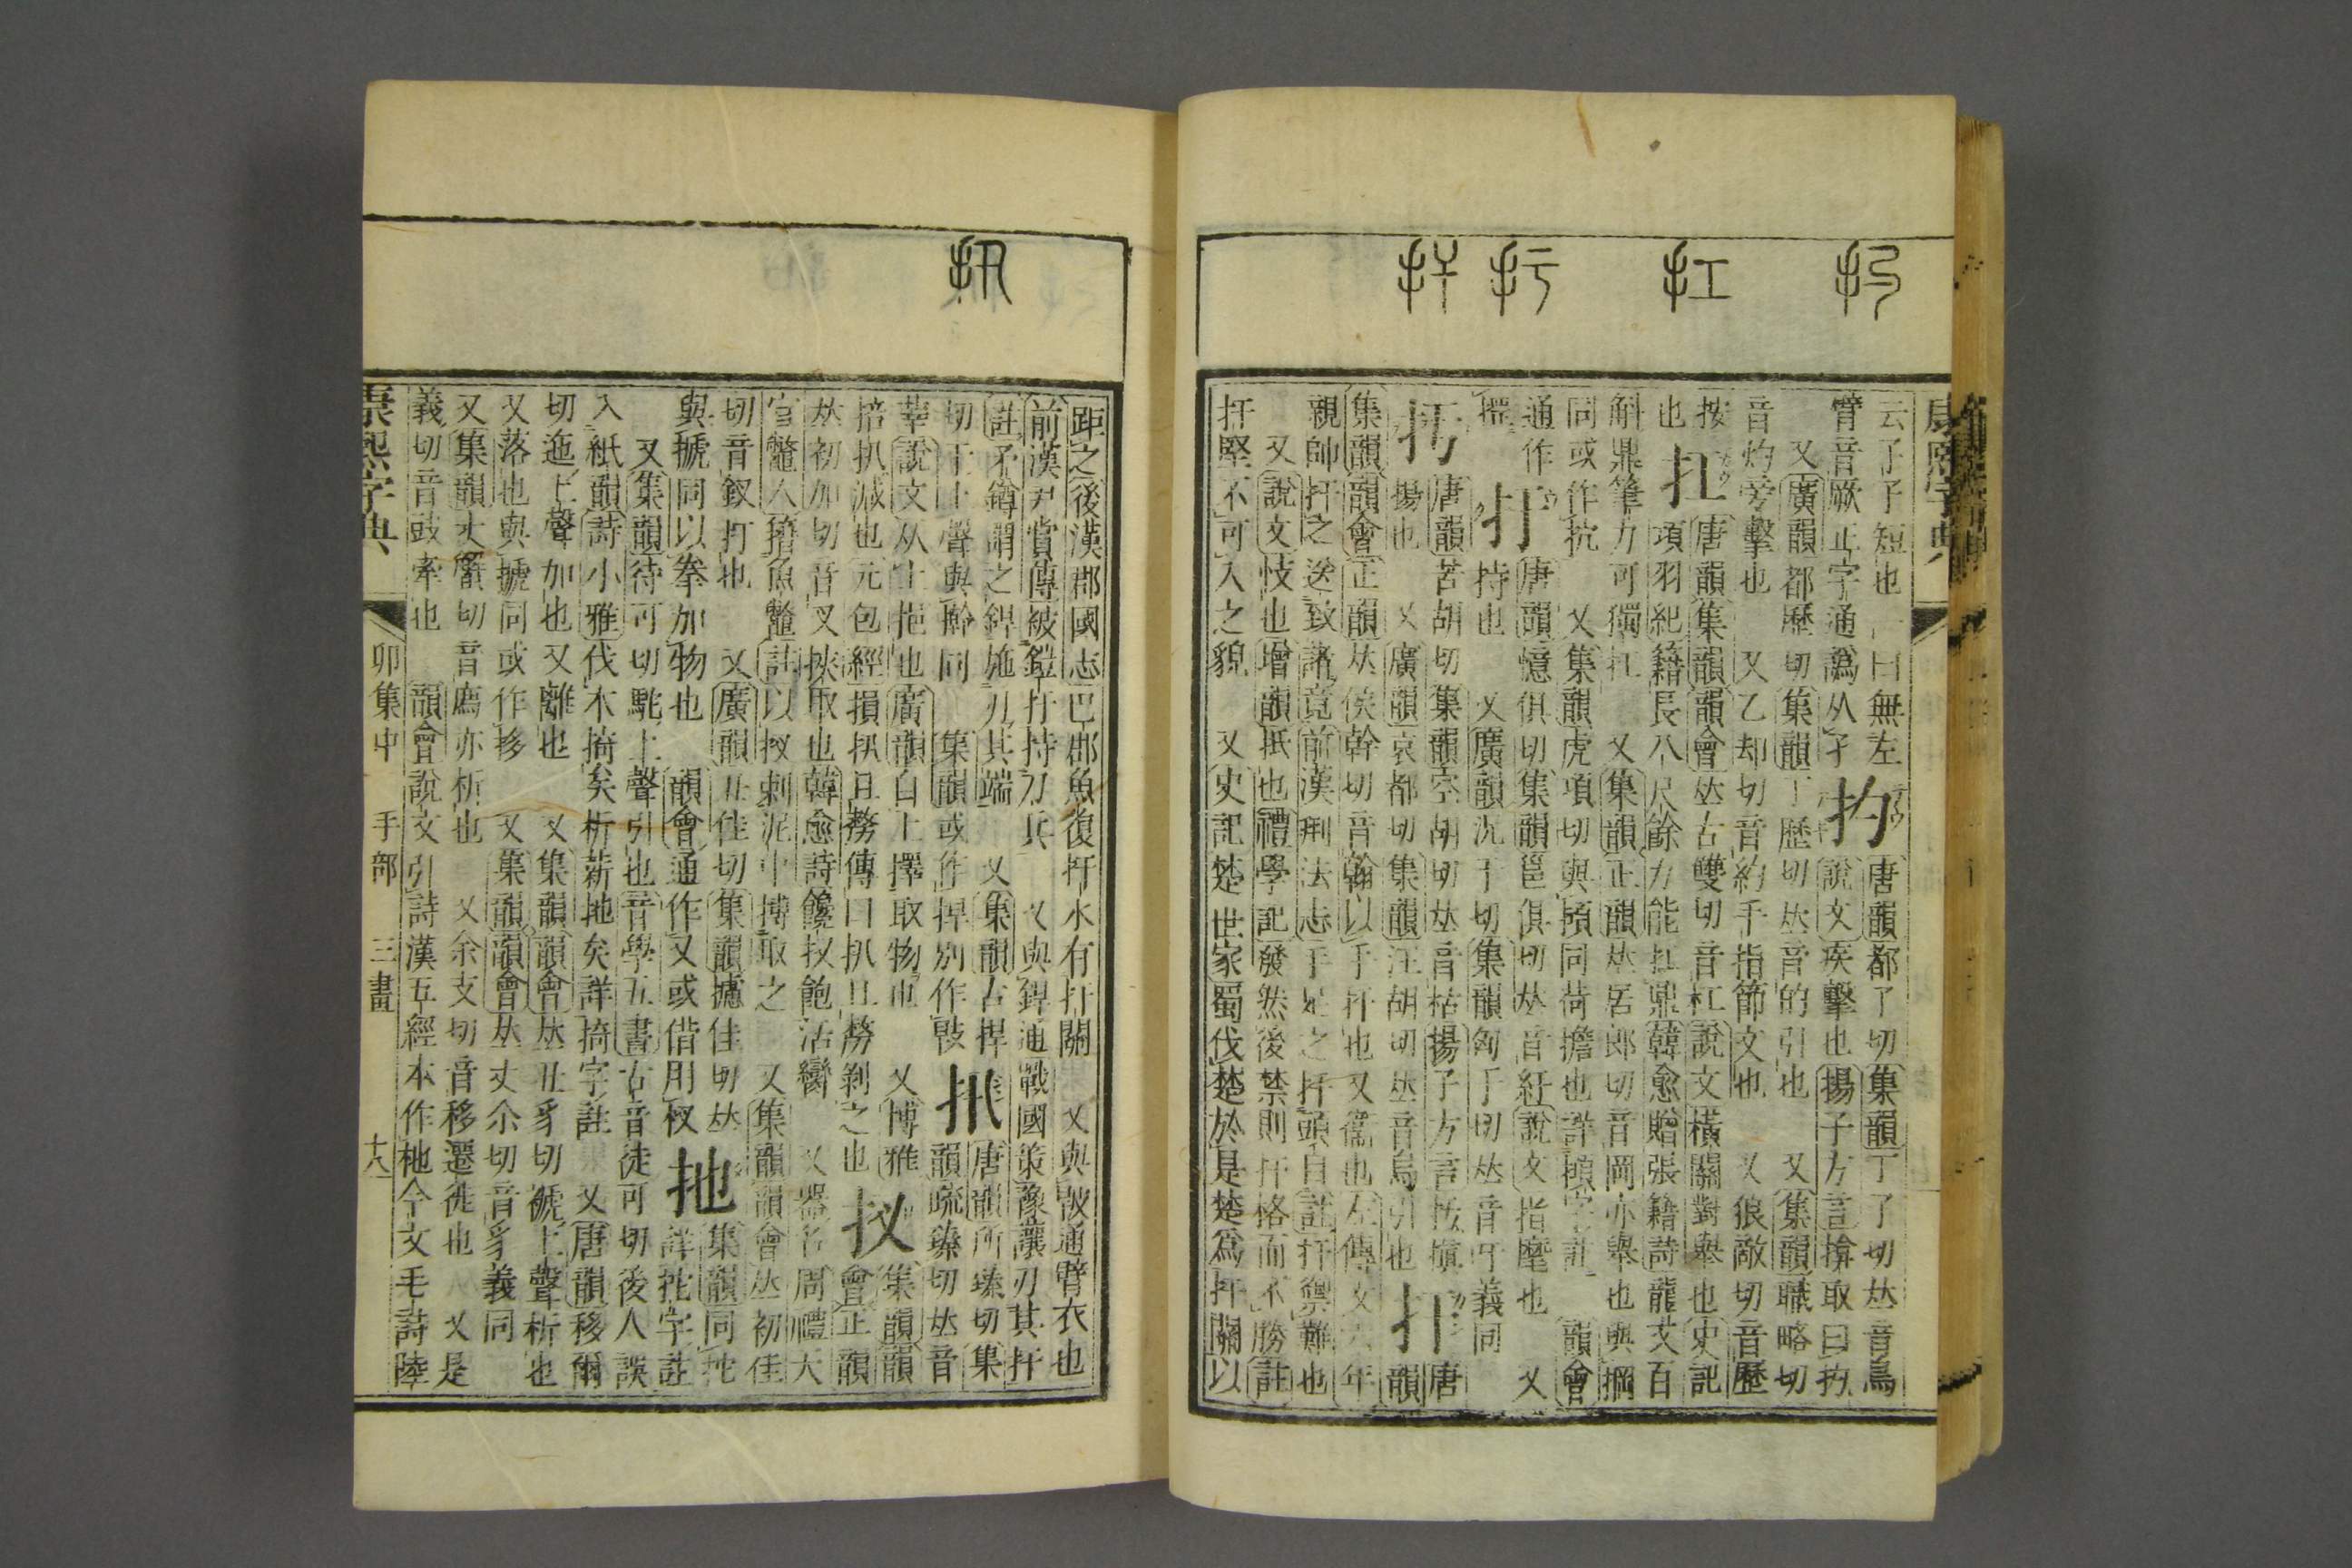 康熙字典
云孑孑短也一曰無左 唐韻都了切集韻丁了切𠀤音鳥
臂音厥正字通譌从孑 扚 說文疾擊也揚子方言揜取曰扚
又廣韻都歷切集韻丁歷切𠀤音的引也 又集韻職略切
音灼旁擊也 又乙却切音約手指節文也 又狼敵切音歷
按 扛 唐韻集韻韻會𠀤古雙切音杠說文橫關對舉也史記
也 項羽紀籍長八尺餘力能扛鼎韓愈贈張籍詩龍文百
斛鼎筆力可獨扛 又集韻正韻𠀤居郎切音岡亦舉也與掆
同或作抗 又集韻虎項切與傾同荷擔也詳字註 韻會
通作 扜 唐韻憶俱切集韻邕俱切𠀤音紆說文指麾也 又
持也 又廣韻況于切集韻匈于切𠀤音吁義同
扝 唐韻苦胡切集韻空胡切𠀤音枯揚子方言扝搷 唐
揚也 又廣韻哀都切集韻汪胡切𠀤音烏引也 扞 韻
集韻韻會正韻𠀤侯幹切音翰以手扞也又衞也左傳文六年
親帥扞之送致諸竟前漢刑法志手足之扞頭目註扞禦難也
又說文忮也增韻抵也禮學記發然後禁則扞格而不勝註
扞堅不可入之貌 又史記楚世家蜀伐楚於是楚爲扞關以
距之後漢郡國志巴郡魚復扞水有扞關 又與㪋通臂衣也
前漢尹賞傳被鎧扞持刀兵 又與銲通戰國策豫讓刃其扞
註矛鐏謂之銲施刃其端 又集韻古捍切 唐韻所臻切集
切干上聲與擀同 集韻或作捍別作㪋 扟 韻疏臻切𠀤音
莘說文从上挹也廣韻自上擇取物也 又博雅 集韻韻
掊扟減也元包經損扟且㩓傳曰扟且㩓剝之也 扠 會正韻
𠀤初加切音叉挾取也韓愈詩饞扠飽活臠 又器名周禮天
官鼈人籍魚鼈註以扠刺泥中搏取之 又集韻韻會𠀤初佳
切音釵打也 又廣韻丑佳切集韻攄佳切𠀤 集韻同拕
與搋同以拳加物也 韻會通作叉或借用杈 扡 詳拕字註
又集韻待可切駝上聲引也音學五書古音徒可切後人誤
入紙韻詩小雅伐木掎矣析薪扡矣詳掎字註 又唐韻移爾
切迤上聲加也又離也 又集韻韻會𠀤丑豸切褫上聲析也
又落也與搋同或作拸 又集韻韻會𠀤丈尒切音豸義同
又集韻丈蟹切音廌亦析也 又余支切音移遷徙也 又是
義切音豉牽也 韻會說文引詩漢五經本作杝今文毛詩陸
康熙字典 卯集中 手部 三畫 十八